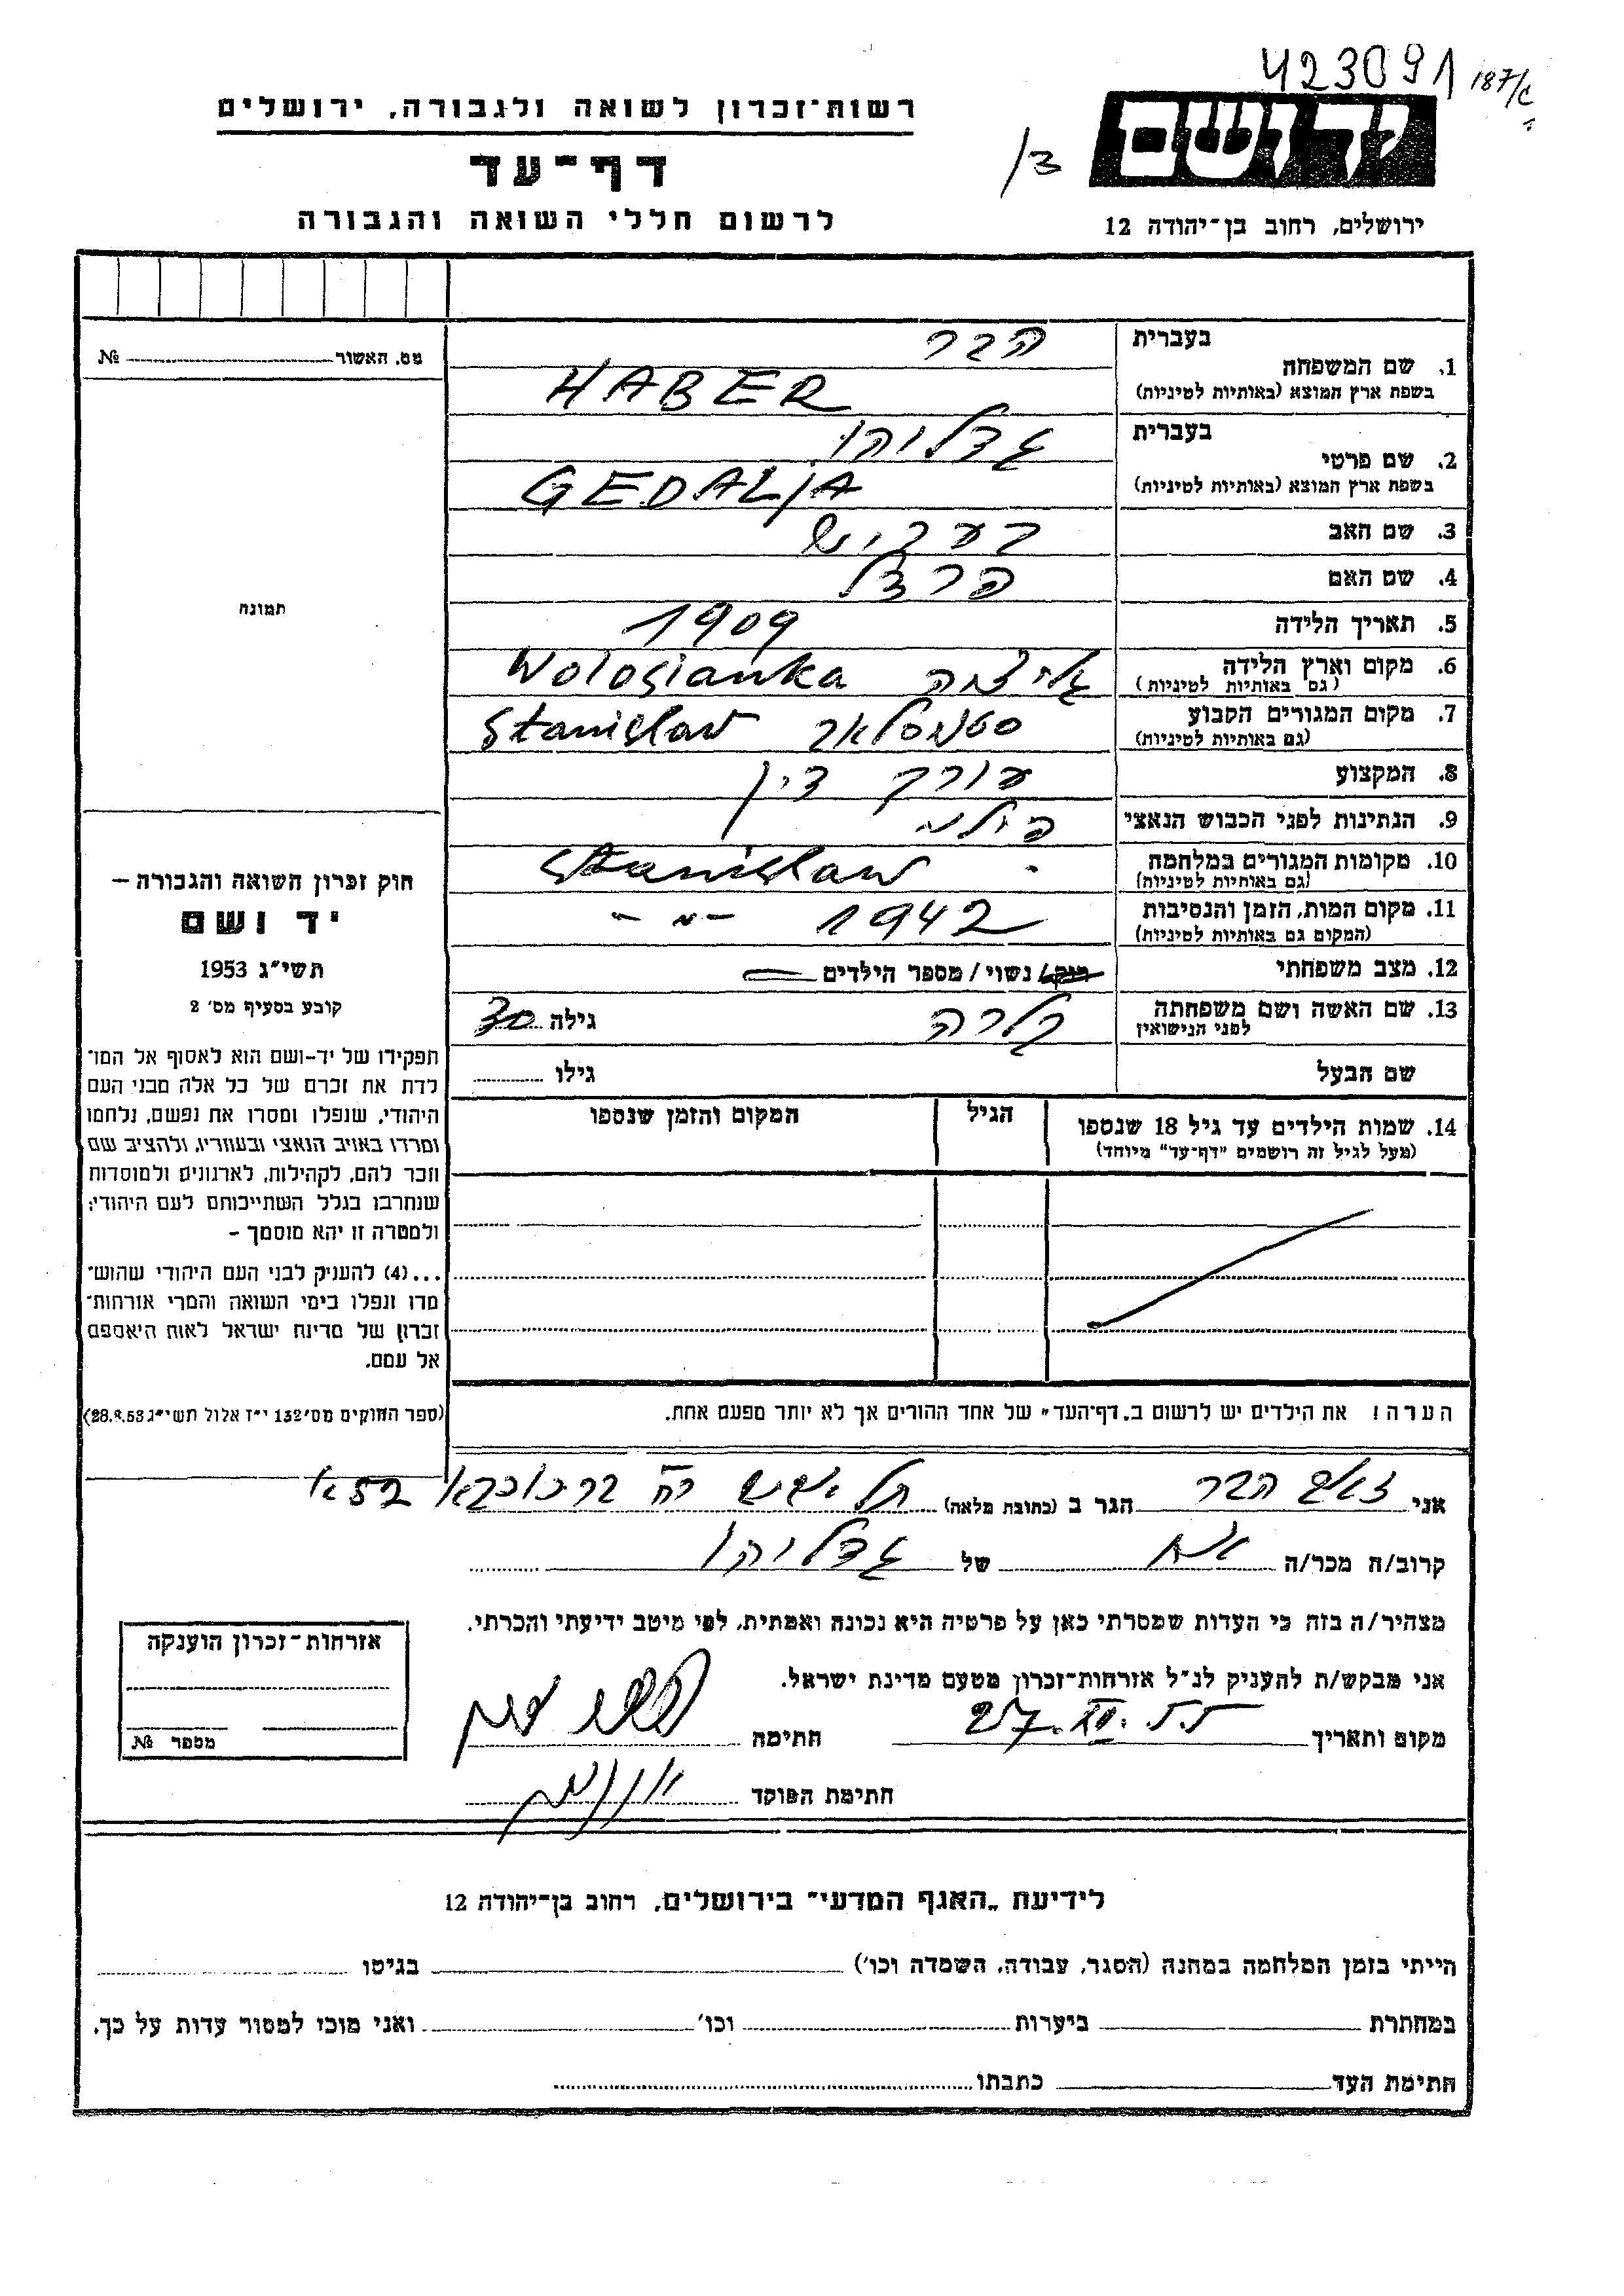 423091 187/כ
רשות־זכרון לשואה ולגבורה, ירושלים
יד ושם
דף־עד
/3
לרשום חללי השואה והגבורה
ירושלים, רחוב בן־יהודה 12
בעברית
הבר
1. שם המשפחה
בשפת ארץ המוצא (באותיות לטיניות)
HABER
מס. האשור № 
בעברית
גדליהו
2. שם פרטי
בשפת ארץ המוצא (באותיות לטיניות)
GEDALJA
3. שם האב
בעריש
4. שם האם
פרדל
תמונה
5. תאריך הלידה 1909
6. מקום וארץ הלידה
(גם באותיות לטיניות)
גליציה Wolosianka
7. מקום המגורים הקבוע
(גם באותיות לטיניות)
סטניסלאב Stanislaw
8. המקצוע
עורך דין
9. הנתינות לפני הכבוש הנאצי
פולנ
10. מקומות המגורים במלחמה
(גם באותיות לטיניות)
Stanislaw
11. מקום המות, הזמן והנסיבות
(המקום גם באותיות לטיניות)
1942 -"-
12. מצב משפחתי
רוק/ נשוי / מספר הילדים
13. שם האשה ושם משפחתה
לפני הנישואין
קלרה
גילה 30
שם הבעל
גילו
14. שמות הילדים עד גיל 18 שנספו
(מעל לגיל זה רושמים "דף־עד" מיוחד)
הגיל
המקום והזמן שנספו
חוק זכרון השואה והגבורה –
יד ושם
תשי"ג 1953
קובע בסעיף מס' 2
תפקידו של יד-ושם הוא לאסוף אל המו־
לדת את זכרם של כל אלה מבני העם
היהודי, שנפלו ומסרו את נפשם, נלחמו
ומרדו באויב הנאצי ובעוזריו, ולהציב שם
וזכר להם, לקהילות, לארגונים ולמוסדות
שנחרבו בגלל השתייכותם לעם היהודי;
ולמטרה זו יהא מוסמך –
...(4) להעניק לבני העם היהודי שהוש־
מדו ונפלו בימי השואה והמרי אזרחות־
זכרון של מדינת ישראל לאות היאספם
אל עמם.
(ספר החוקים מס' 132 י"ז אלול תשי"ג 28.8.53)
הערה! את הילדים יש לרשום ב„דף־העד" של אחד ההורים אך לא יותר מפעם אחת.
אני זאב הבר הגר ב (כתובת מלאה) רח ברכוכבא 52א
קרוב/ה מכר/ה אח של גדליהו
מצהיר/ה בזה כי העדות שמסרתי כאן על פרטיה היא נכונה ואמתית, לפי מיטב ידיעתי והכרתי.
אני מבקש/ת להעניק לנ"ל אזרחות־זכרון מטעם מדינת ישראל.
מקום ותאריך
חתימה
חתימת הפוקד
אזרחות־זכרון הוענקה
מספר №
לידיעת „האגף המדעי" בירושלים, רחוב בן־יהודה 12
הייתי בזמן המלחמה במחנה (הסגר, עבודה, השמדה וכו') בגיטו
במחתרת ביערות וכו' ואני מוכן למסור עדות על כך.
חתימת העד כתבתו